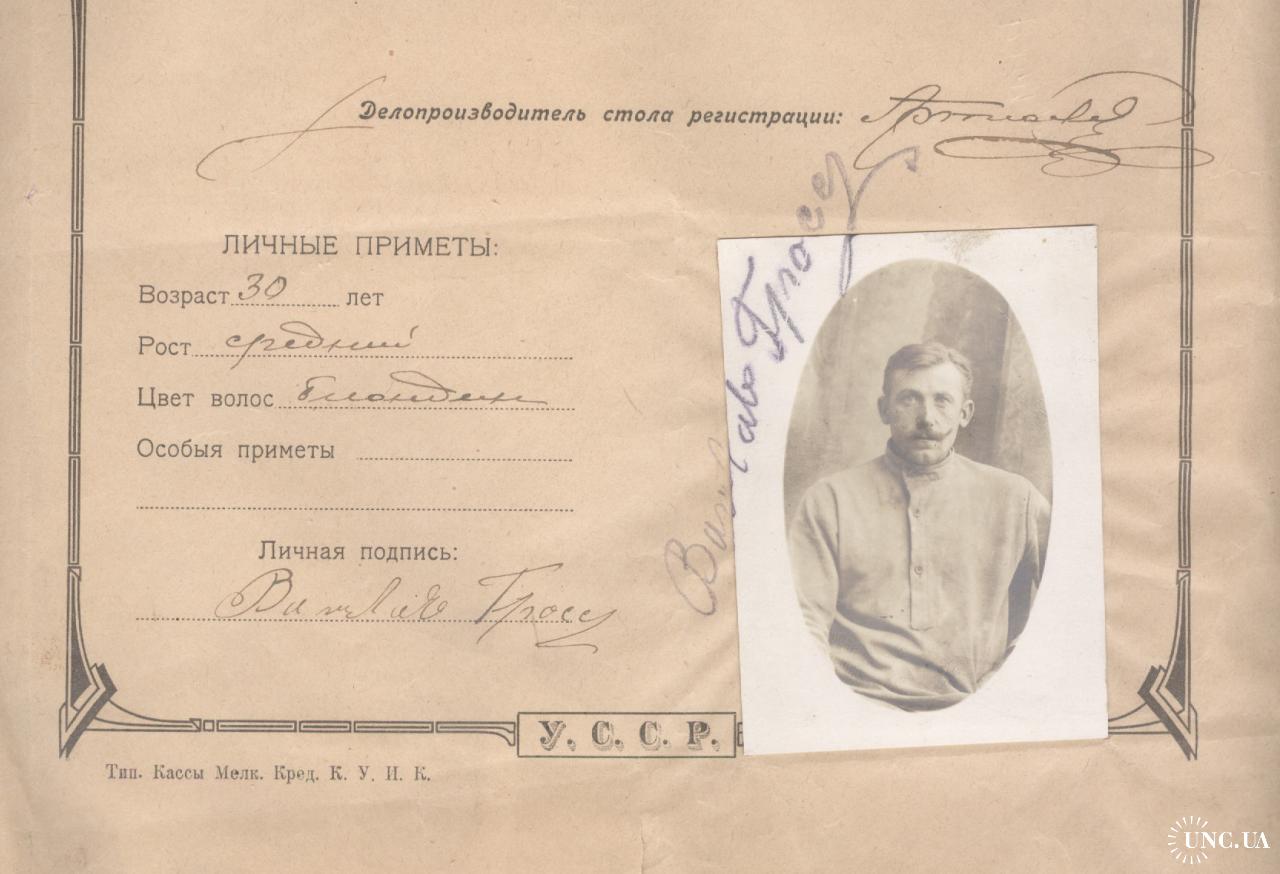 Делопроизводитель стола регистрации:
ЛИЧНЫЕ ПРИМЕТЫ:
Возраст 30 лет
Рост средний
Цвет волос блондин
Особыя приметы
Личная подпись:
Гросс
Гросс
У. С. С. Р.
Тип. Кассы Мелк. Кред. К. У. И. К.
UNC.UA